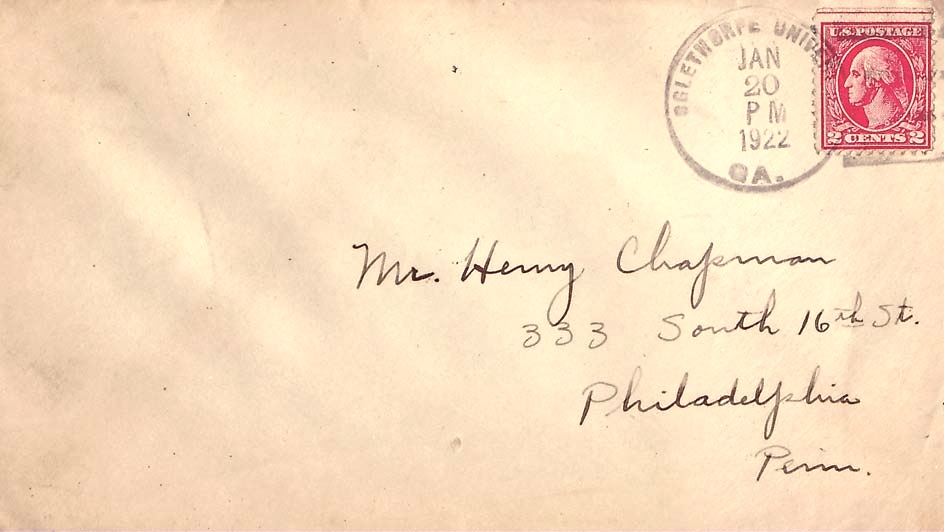 OGLETHORPE UNIV
JAN
20
PM
1922
GA.
U.S. POSTAGE
2 CENTS 2
Mr. Henry Chapman
333 South 16th St.
Philadelphia
Penn.